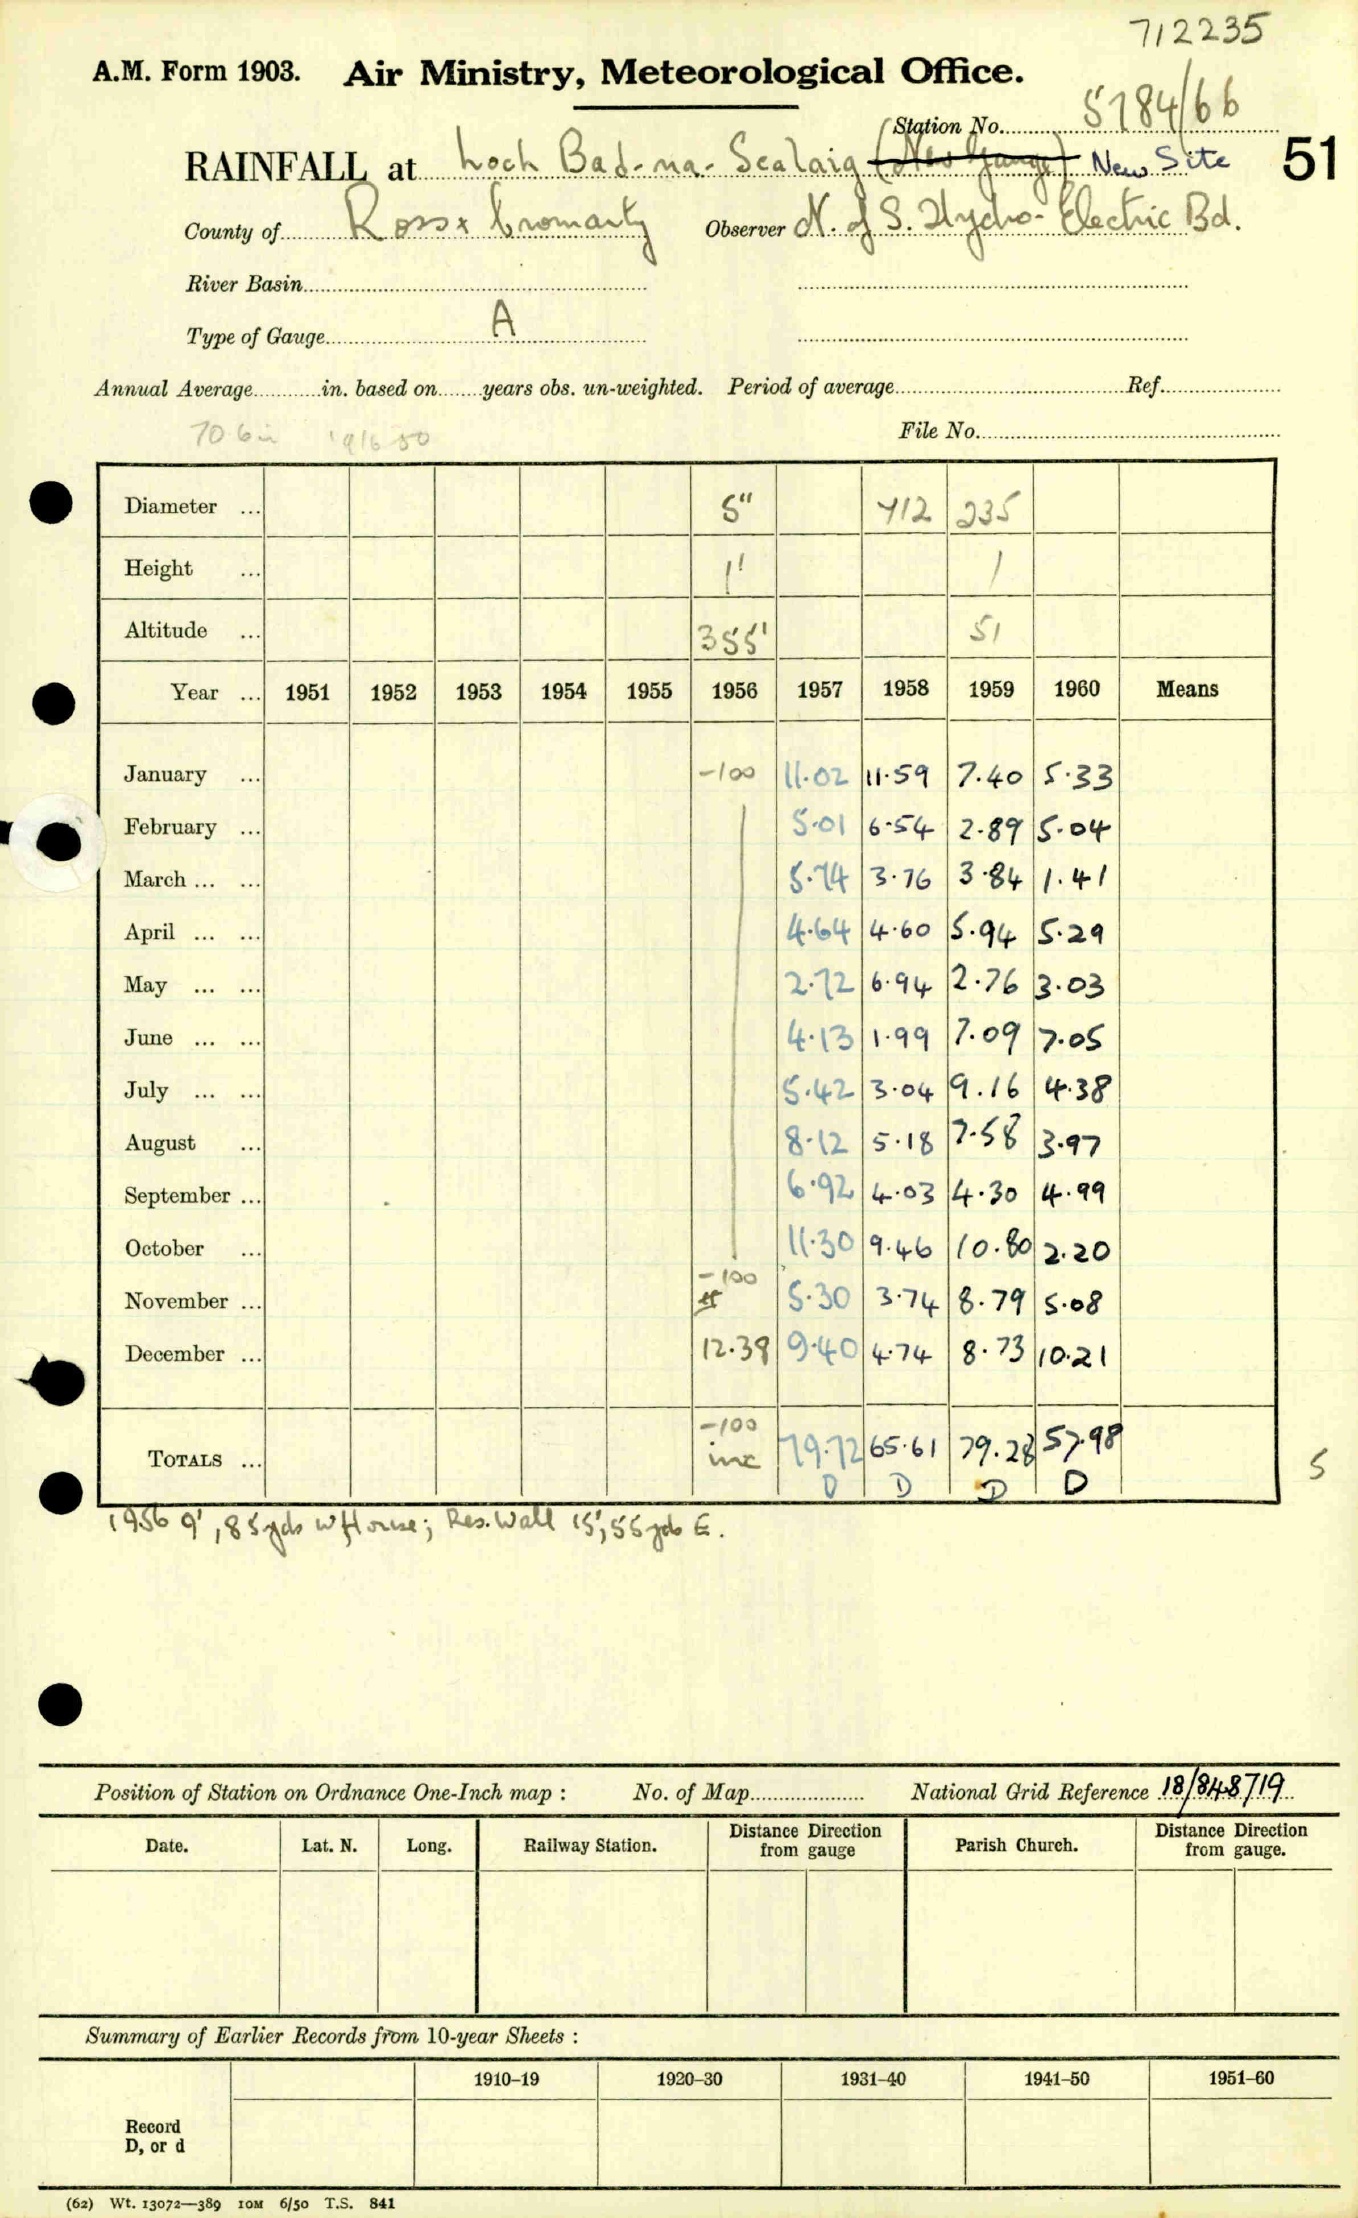 712235
A.M. Form 1903. Air Ministry, Meteorological Office.
Station No. 5784/6b
RAINFALL at Loch Bad-na-Sealaig (New Gauge) New Site 51
County of Ross & Cromarty Observer N. of S. Hydro-Electric Bd.
River Basin
Type of Gauge A
Annual Average in. based on years obs. un-weighted. Period of average Ref.
70.6 in 1916 50 File No.
Diameter ... 5" 712 235
Height ... 1' 1
Altitude ... 355' 51
Year ... 1951 1952 1953 1954 1955 1956 1957 1958 1959 1960 Means
January ... -100 11.02 11.59 7.40 5.33
February ... 5.01 6.54 2.89 5.04
March ... ... 5.74 3.76 3.84 1.41
April ... ... 4.64 4.60 5.94 5.29
May ... ... 2.72 6.94 2.76 3.03
June ... ... 4.13 1.99 7.09 7.05
July ... ... 5.42 3.04 9.16 4.38
August ... 8.12 5.18 7.58 3.97
September ... 6.92 4.03 4.30 4.99
October ... 11.30 9.46 10.80 2.20
November ... -100 5.30 3.74 8.79 5.08
December ... 12.39 9.40 4.74 8.73 10.21
-100
TOTALS ... inc 79.72 65.61 79.28 57.98
D D D D
5
1956 9', 85yds W, House; Res. Wall 15', 55yds E.
Position of Station on Ordnance One-Inch map : No. of Map National Grid Reference 18/848719
Date. Lat. N. Long. Railway Station. Distance from Direction gauge Parish Church. Distance from Direction gauge.
Summary of Earlier Records from 10-year Sheets :
1910–19 1920–30 1931–40 1941–50 1951–60
Record
D, or d
(62) Wt. 13072—389 10M 6/50 T.S. 841